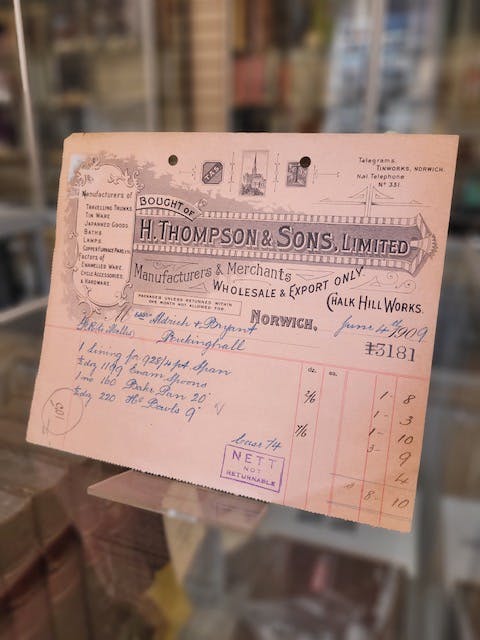 Telegrams.
TINWORKS, NORWICH.
Nat Telephone
No 331.
T.S.S.
Manufacturers of
TRAVELLING TRUNKS
TIN WARE
JAPANNED GOODS
BATHS
LAMPS
COPPER FURNACE PANS, ETC.
Factors of
ENAMELLED WARE.
CYCLE ACCESSORIES
& HARDWARE.
BOUGHT OF
H. THOMPSON & SONS, LIMITED
Manufacturers & Merchants
WHOLESALE & EXPORT ONLY.
CHALK HILL WORKS.
PACKAGES UNLESS RETURNED WITHIN
ONE MONTH NOT ALLOWED FOR.
NORWICH.
June 4th 1909
Aldrich & Bryant
Rickinghall
3181
1 Lining for 928/4 pt. Span
½dz 1199 Enam Spoons 2/6 1 - 3
1 no 160 Bake Pan 20"
½dz 220 Bowls 9" 7/6
Case 74
NETT
NOT
RETURNABLE
1 - 8
1 - 10
3 - 9
4
8 - 10